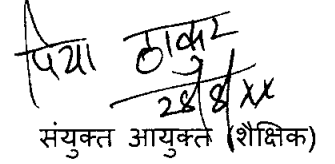 पिया ठाकुर
28/8/XX
संयुक्त आयुक्त (शैक्षिक)